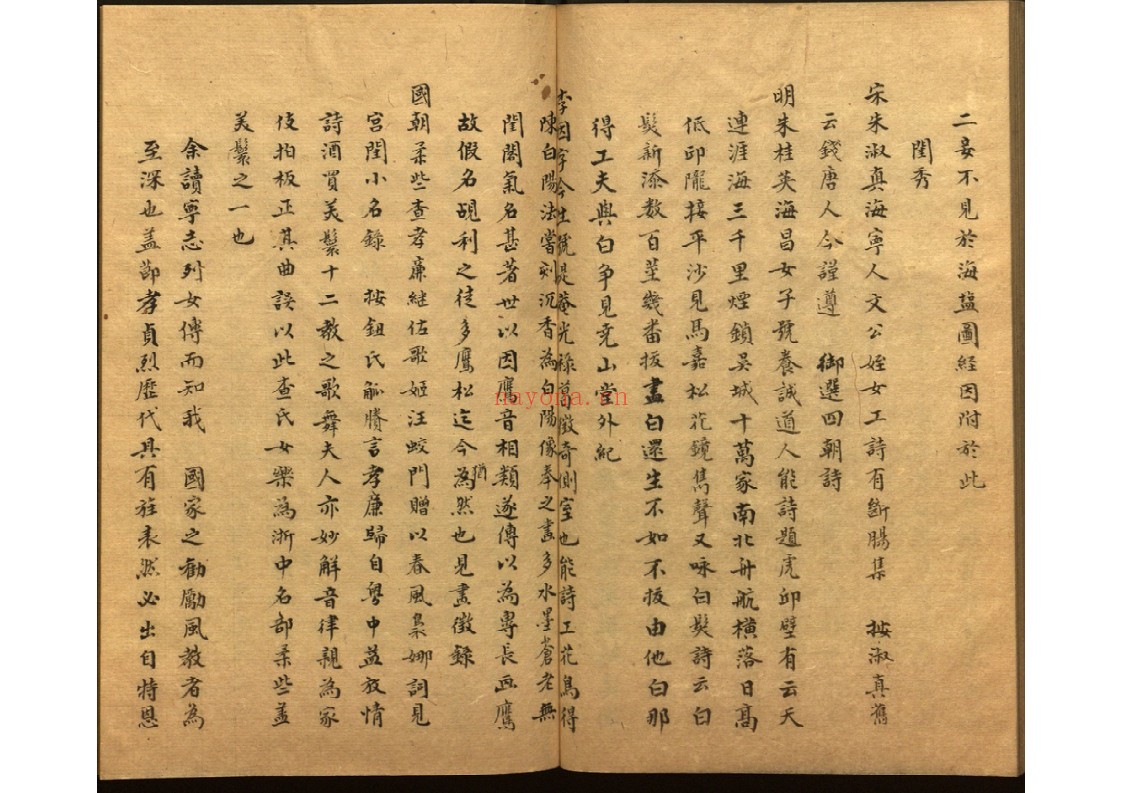 二妾不見於海塩圖経因附於此
閨秀
宋朱淑真海寧人文公姪女工詩有斷腸集　按淑真舊
云錢唐人今謹遵　御選四朝詩
明朱桂英海昌女子號養誠道人能詩題虎邱壁有云天
連涯海三千里煙鎖吳城十萬家南北舟航橫落日髙
低邱隴接平沙見馬嘉松花鏡雋聲又咏白髮詩云白
髮新添数百莖幾畨拔盡白還生不如不拔由他白那
得工夫與白争見尭山堂外紀
李因字今生號是菴光祿葛徵奇側室也能詩工花鳥得
陳白陽法嘗刻沉香為白陽像奉之畫多水墨蒼老無
閨閣氣名甚著世以因鷹音相類遂傳以為專長画鷹
故假名覘利之徒多鷹松迄今猶為然也見畫徵錄
國朝柔些查孝廉継佐歌姬汪蛟門贈以春風裊娜詞見
宮閨小名錄　按鈕氏觚賸言孝廉歸自粤中益放情
詩酒買美鬟十二教之歌舞夫人亦妙解音律親為家
伎拍板正其曲誤以此查氏女樂為浙中名部柔些盖
美鬟之一也
余讀寧志列女傳而知我　國家之勸勵風教者為
至深也盖節孝貞烈歷代具有旌表然必出自特恩
nayona.cn